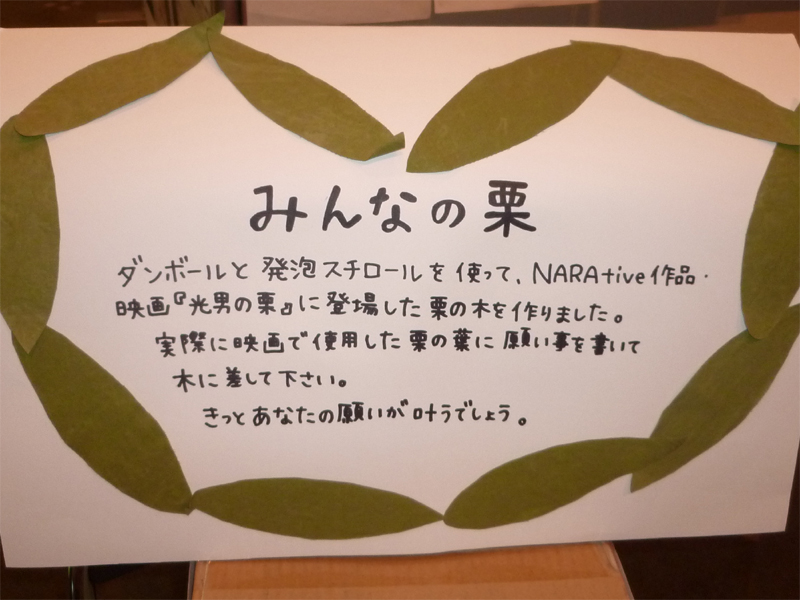 みんなの栗
ダンボールと発泡スチロールを使って、NARAtive作品・
映画『光男の栗』に登場した栗の木を作りました。
実際に映画で使用した栗の葉に願い事を書いて
木に差して下さい。
きっとあなたの願いが叶うでしょう。